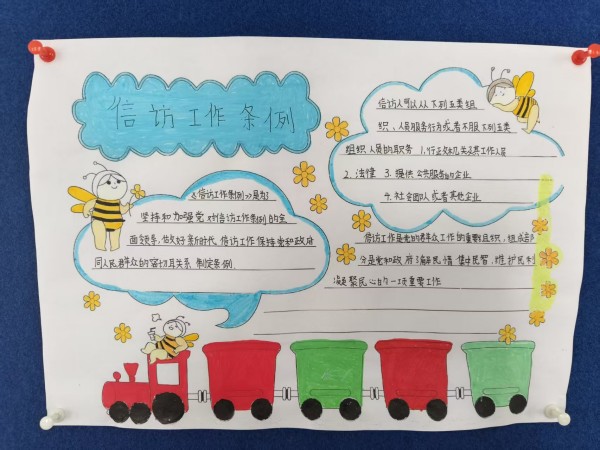 信访工作条例
《信访工作条例》是为了
坚持和加强党 对信访工作条例的全
面领导,做好新时代 信访工作 保持党和政府
同人民群众的密切关系 制定条例
信访人可以从下列五类组
织、人员服务行为或者不服下列五类
组织人员的职务 1.行政机关及其工作人员
2.法律 3.提供公共服务的企业
4.社会团队或者其他企业
信访工作是党的群众工作的重要组织,组成部
分是党和政府了解民情 集中民智,维护民利
凝聚民心的一项重要工作